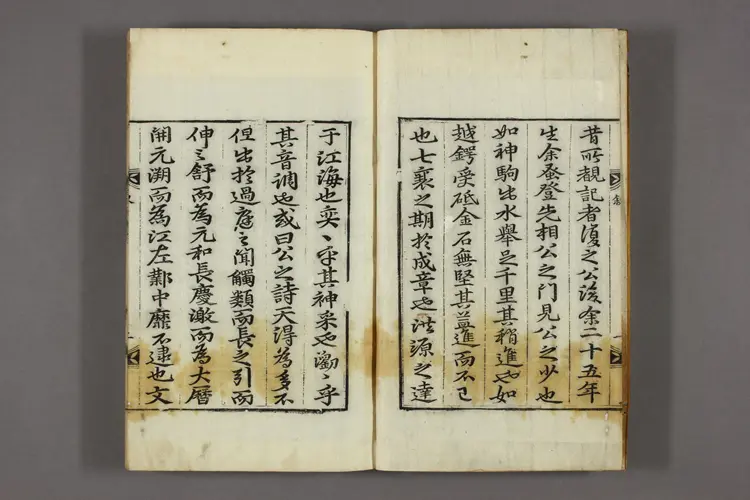 昔所覩記者復之公後余二十五年
生余蚤登先相公之門見公之少也
如神駒出水舉足千里其稍進也如
越鍔受砥金石無堅其益進而不已
也七襄之期於成章也洪源之達
于江海也奕〻乎其神采也瀏〻乎
其音調也或曰公之詩天得為多不
但出於過庭之聞觸類而長之引而
伸之舒而為元和長慶漱而為大曆
開元溯而為江左鄴中靡不逮也文